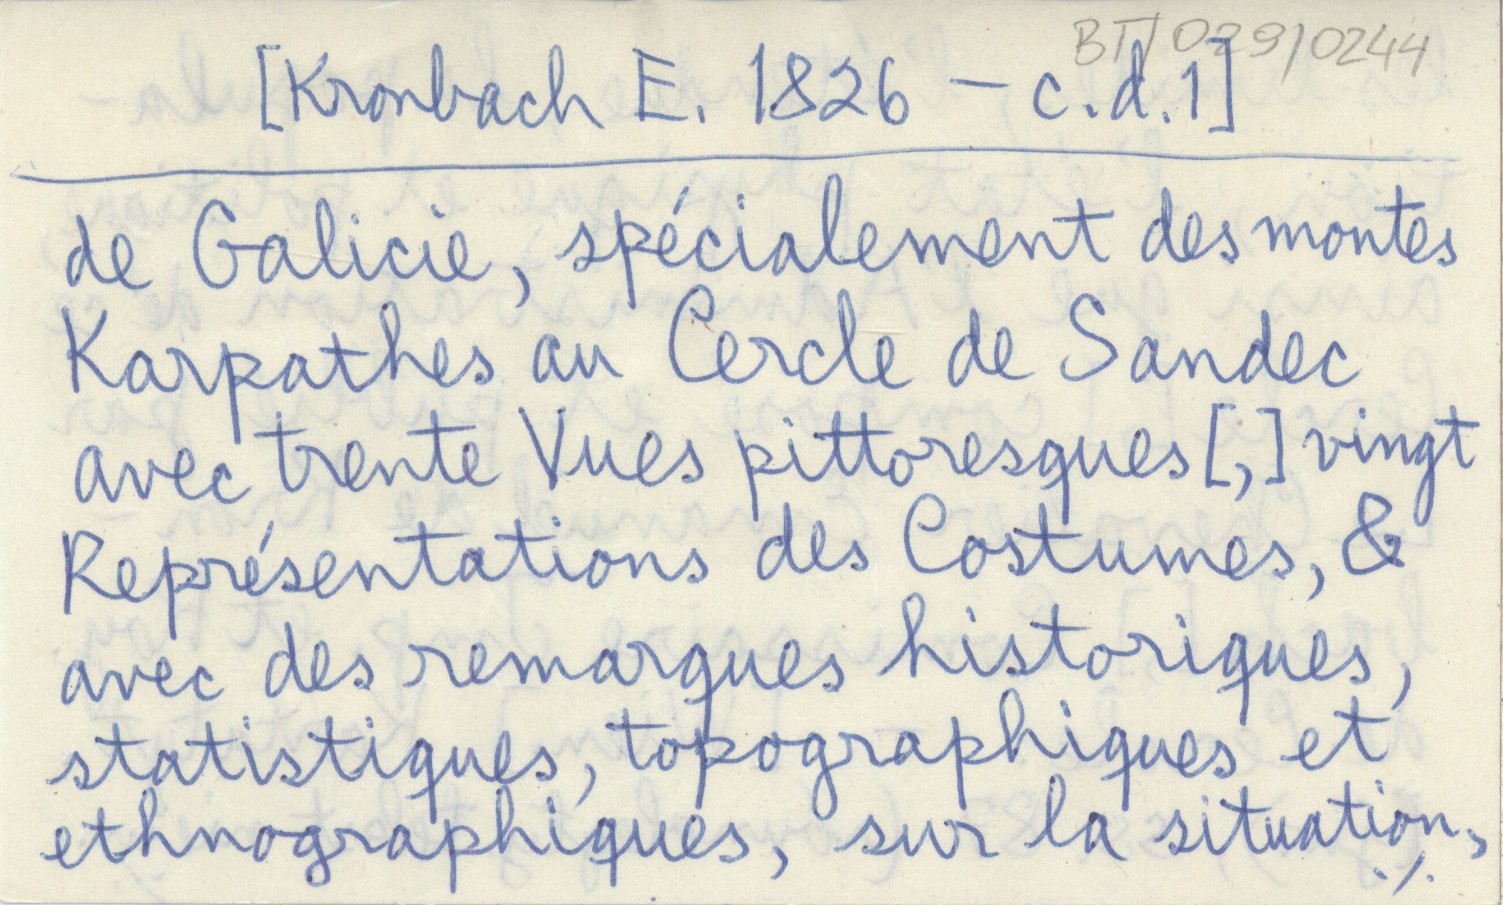 BT/029/0244
[Kronbach E. 1826 – c.d.1]
de Galicie, spécialement des montes
Karpathes au Cercle de Sandec
avec trente Vues pittoresques[,] vingt
Représentations des Costumes, &
avec des remarques historiques,
statistiques, topographiques et
ethnographiques, sur la situation,
./.